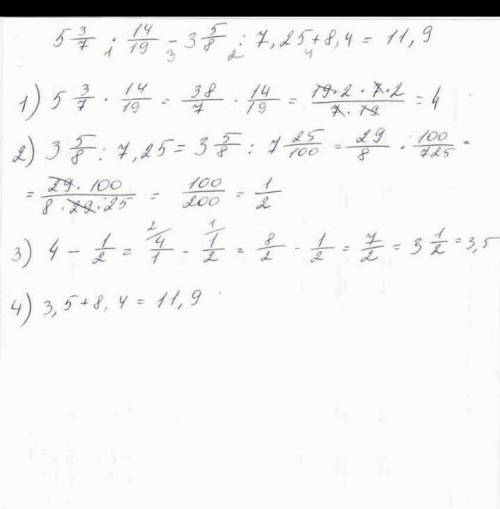 5 3/7 · 14/19 - 3 5/8 : 7,25 + 8,4 = 11,9
1 3 2 4
1) 5 3/7 · 14/19 = 38/7 · 14/19 = 19·2·7·2/7·19 = 4
2) 3 5/8 : 7,25 = 3 5/8 : 7 25/100 = 29/8 · 100/725 =
= 29·100/8·29·25 = 100/200 = 1/2
3) 4 - 1/2 = 4/1 - 1/2 = 8/2 - 1/2 = 7/2 = 3 1/2 = 3,5
4) 3,5 + 8,4 = 11,9